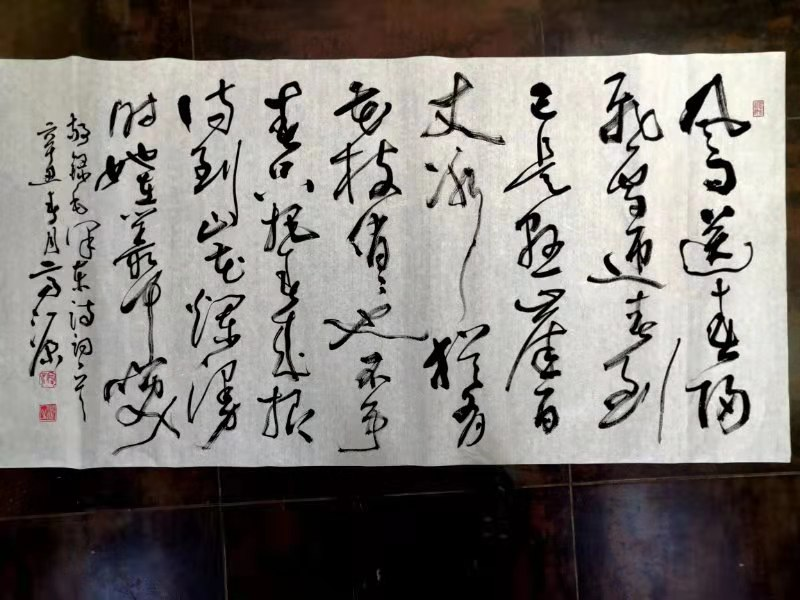 风雨送春归
飛雪迎春到
已是悬崖百
丈冰犹有
花枝俏〻也不争
春只把春来报
待到山花烂漫
时她在丛中笑
敬録毛泽东诗词一首
辛丑春月高江源